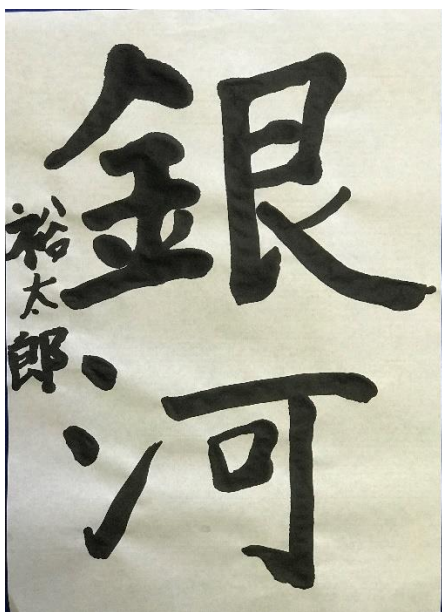 銀河
裕太郎